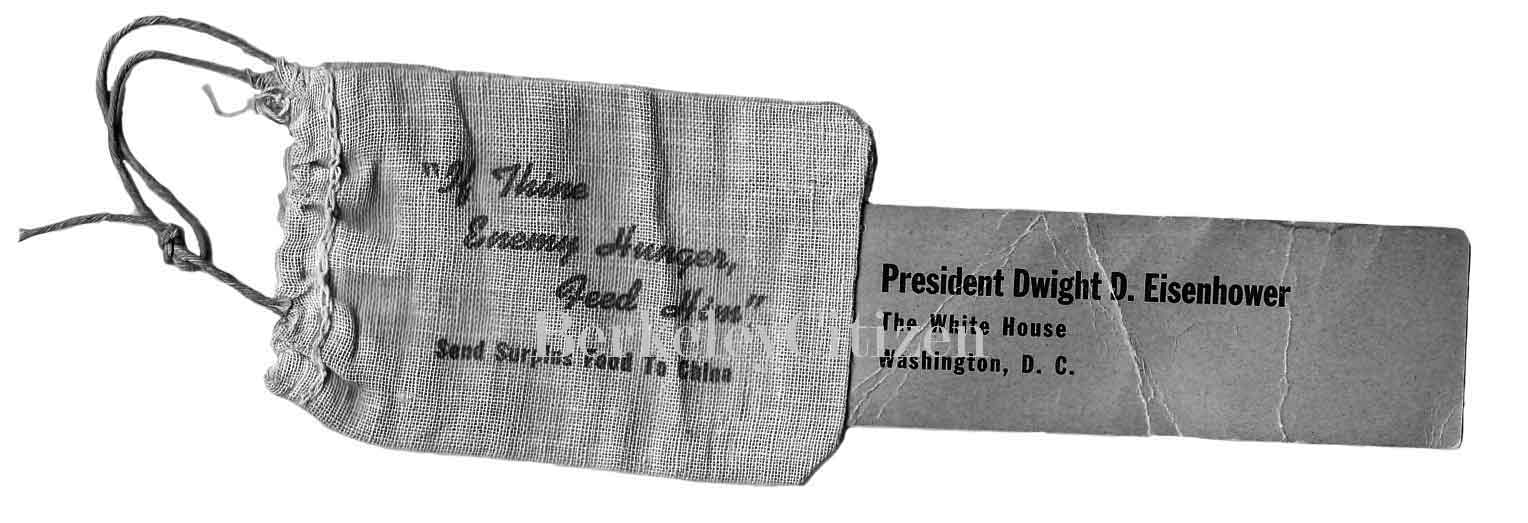 "If Thine
Enemy Hunger,
Feed Him"
Send Surplus Food To China
President Dwight D. Eisenhower
The White House
Washington, D. C.
BerkeleyCitizen